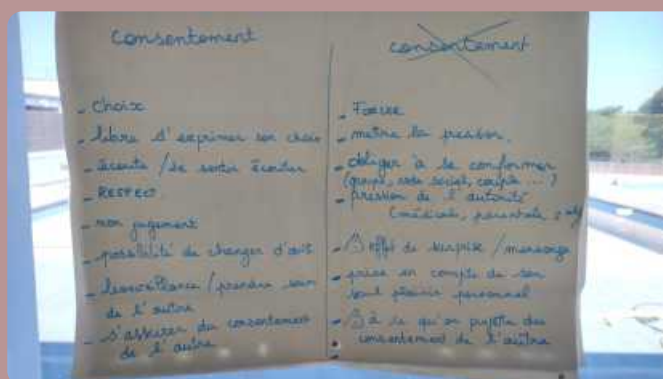 consentement
- choix
- libre d'exprimer son choix
- écoute / se sentir écouter
- RESPECT
- non jugement
- possibilité de changer d'avis
- bienveillance / prendre soin
de l'autre
- s'assurer du consentement
de l'autre
consentement
- Force
- mettre la pression.
- obliger à se conformer
(groupe, code social, couple ...)
- pression de l'autorité
(médicale, parentale,
- effet de surprise / mensonge
- prise en compte de son
seul plaisir personnel
- à ce qu'on projette du
consentement de l'autre